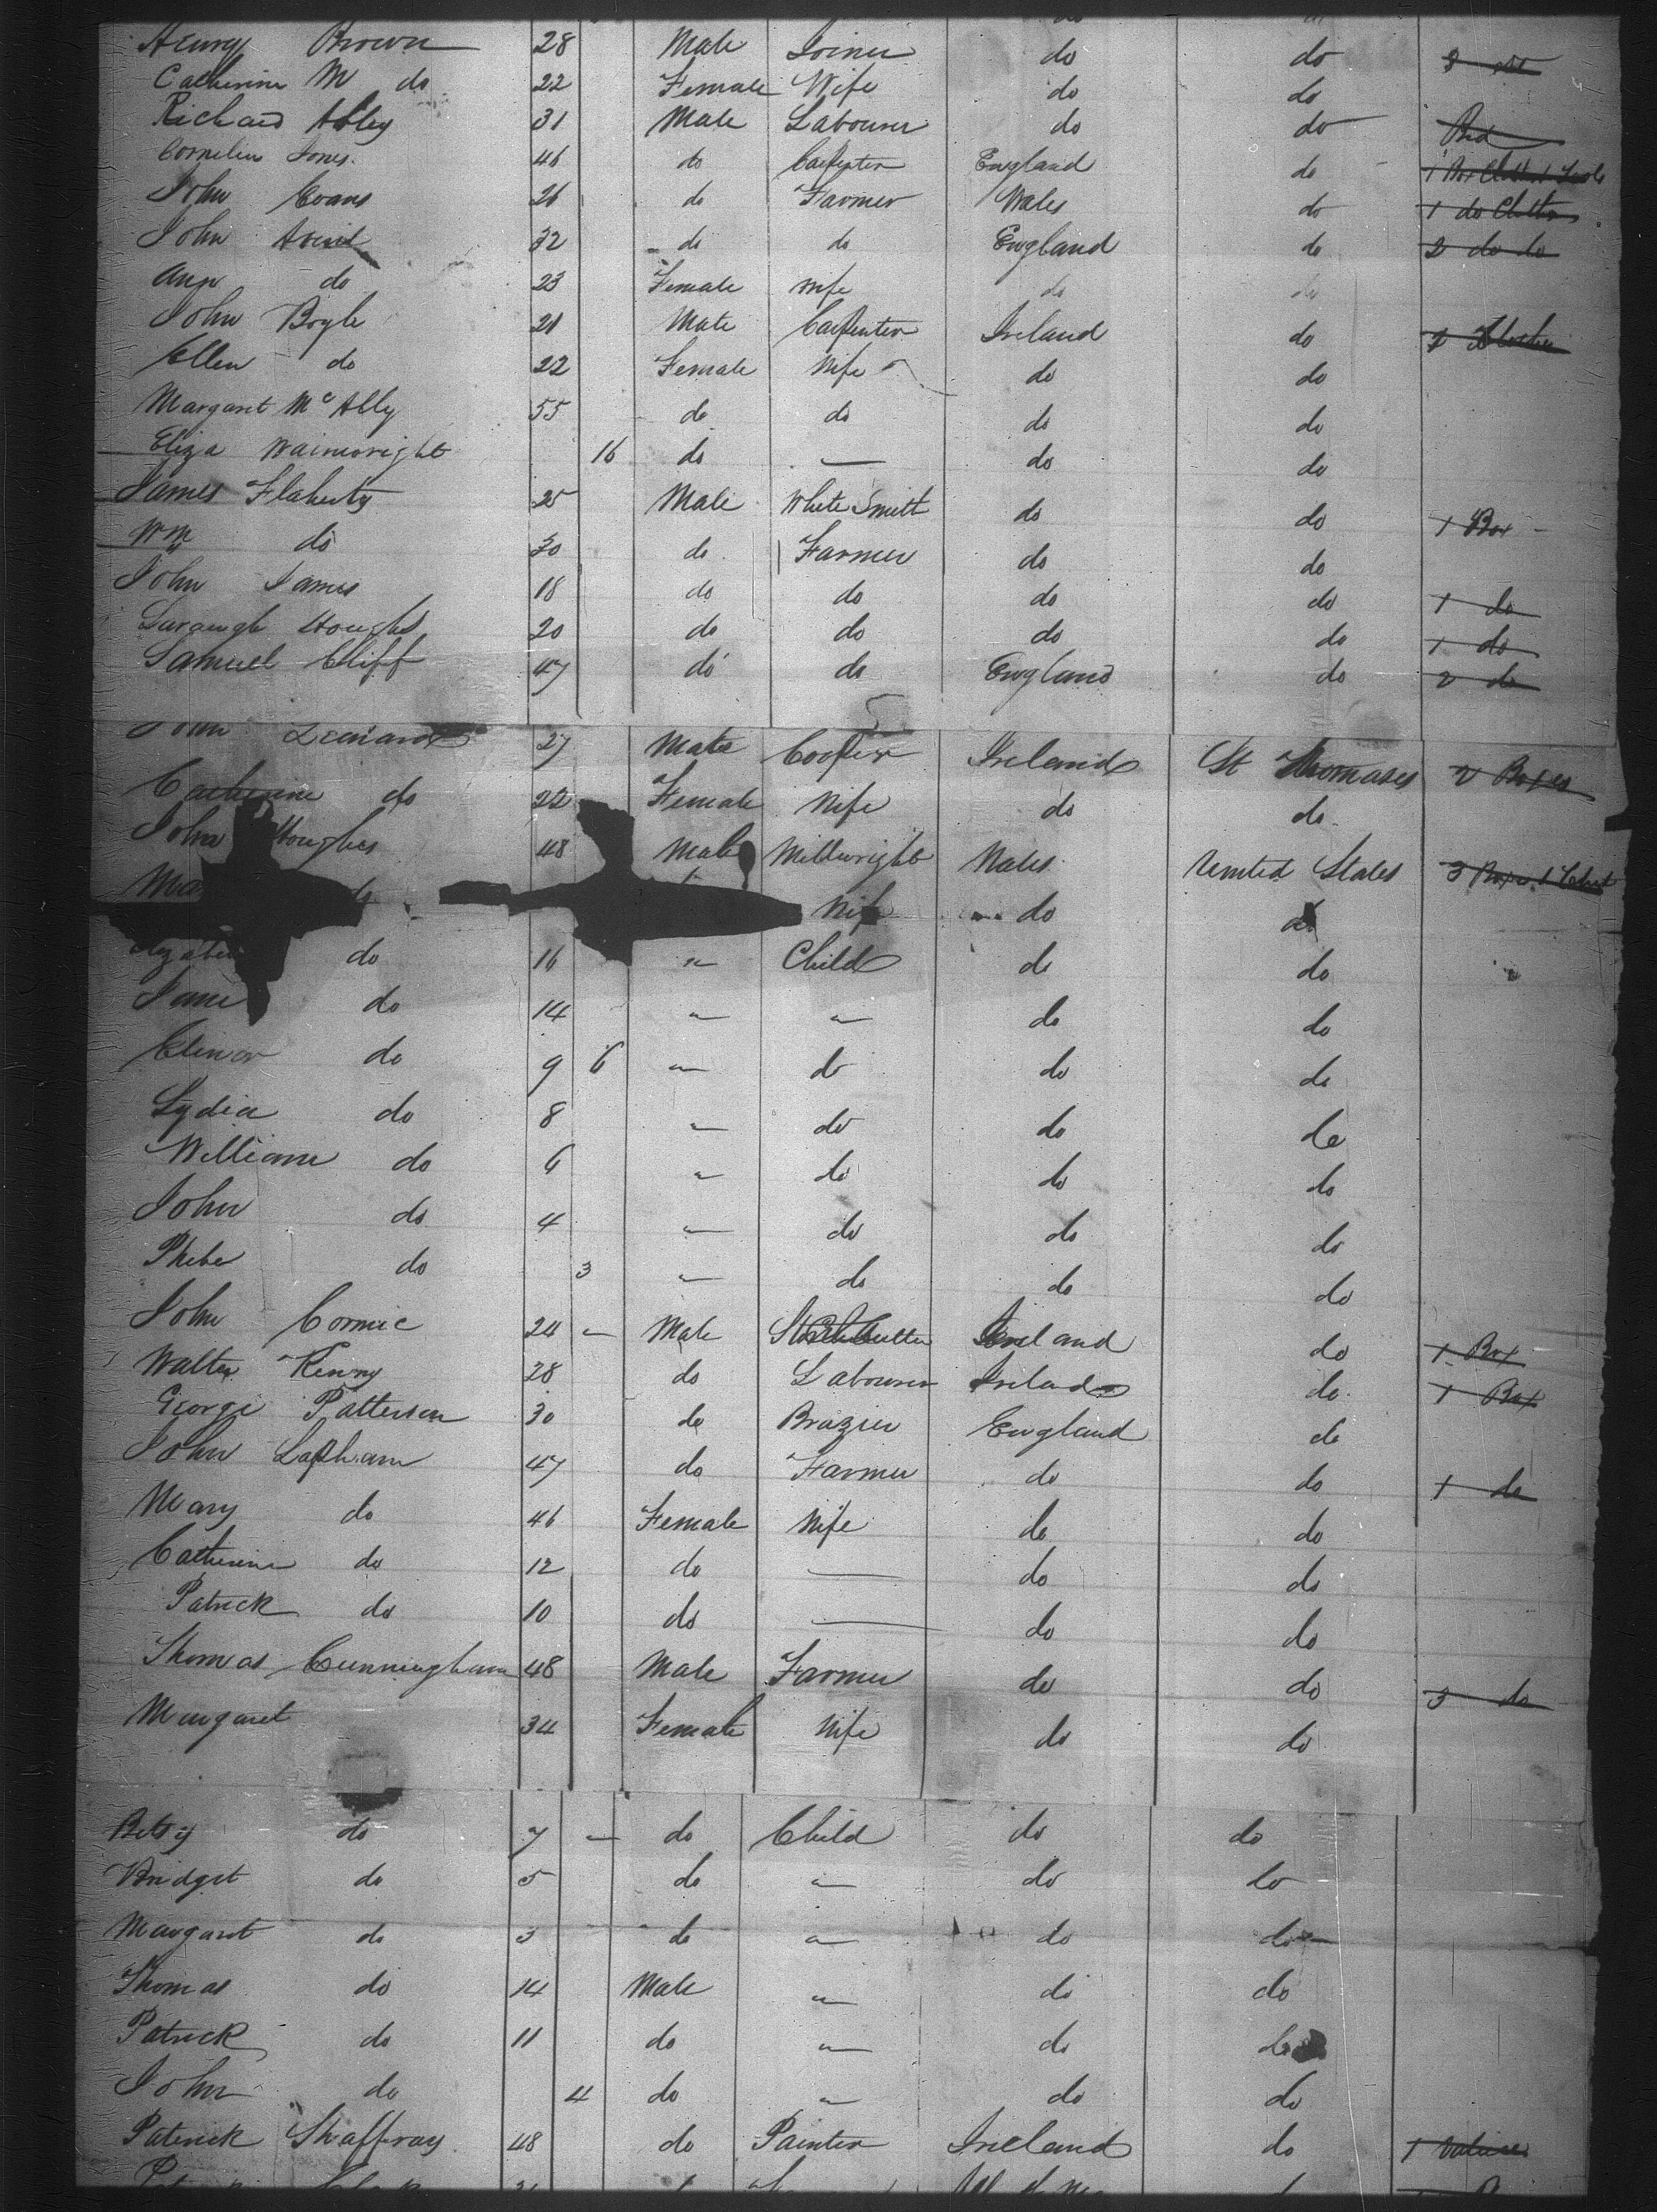 Henry Brown 28 Male Joiner do do
Catherine M do 22 Female Wife do do
Richard Abley 31 Male Labourer do do Bed
Cornelius Jones 46 do Carpenter England do 1 Box Clothes &
John Evans 26 do Farmer Wales do 1 do Clothes
John 32 do do England do 2 do do
Ann do 23 Female Wife do do
John Boyle 21 Male Carpenter Ireland do
Ellen do 22 Female Wife do do
Margaret Mc Ally 55 do do do do
Eliza Wainwright 16 do — do do
James Flaherty 25 Male White Smith do do 1 Box
Wm do 30 do Farmer do do
John James 18 do do do do 1 do
20 do do do do 1 do
Samuel Cliff 47 do do England do 2 do
John Leonard 27 Male Cooper Ireland St Thomases 2 Boxes
Catherine do 22 Female Wife do do
John Hughes 48 Male Millwright Wales United States 3 Boxes 1 Chest
Ma do Wife do do
do 16 " Child do do
Jane do 14 " " do do
Elinor do 9 6 " do do do
Lydia do 8 " do do do
William do 6 " do do do
John do 4 " do do do
Phebe do 3 " do do do
John Cormic 24 - Male Ireland do 1 Box
Walter Kenny 28 do Labourer Ireland do 1 Box
George Patterson 30 do Brazier England do
John Lapham 47 do Farmer do do 1 do
Mary do 46 Female Wife do do
Catherine do 12 do — do do
Patrick do 10 do — do do
Thomas Cunningham 48 Male Farmer do do 3 do
Margaret 34 Female Wife do do
Betsy do 7 - do Child do do
Bridget do 5 do " do do
Margaret do 3 do " do do
Thomas do 14 Male " do do
Patrick do 11 do " do do
John do 4 do " do do
Patrick Shaffray 48 do Painter Ireland do 1 Valise